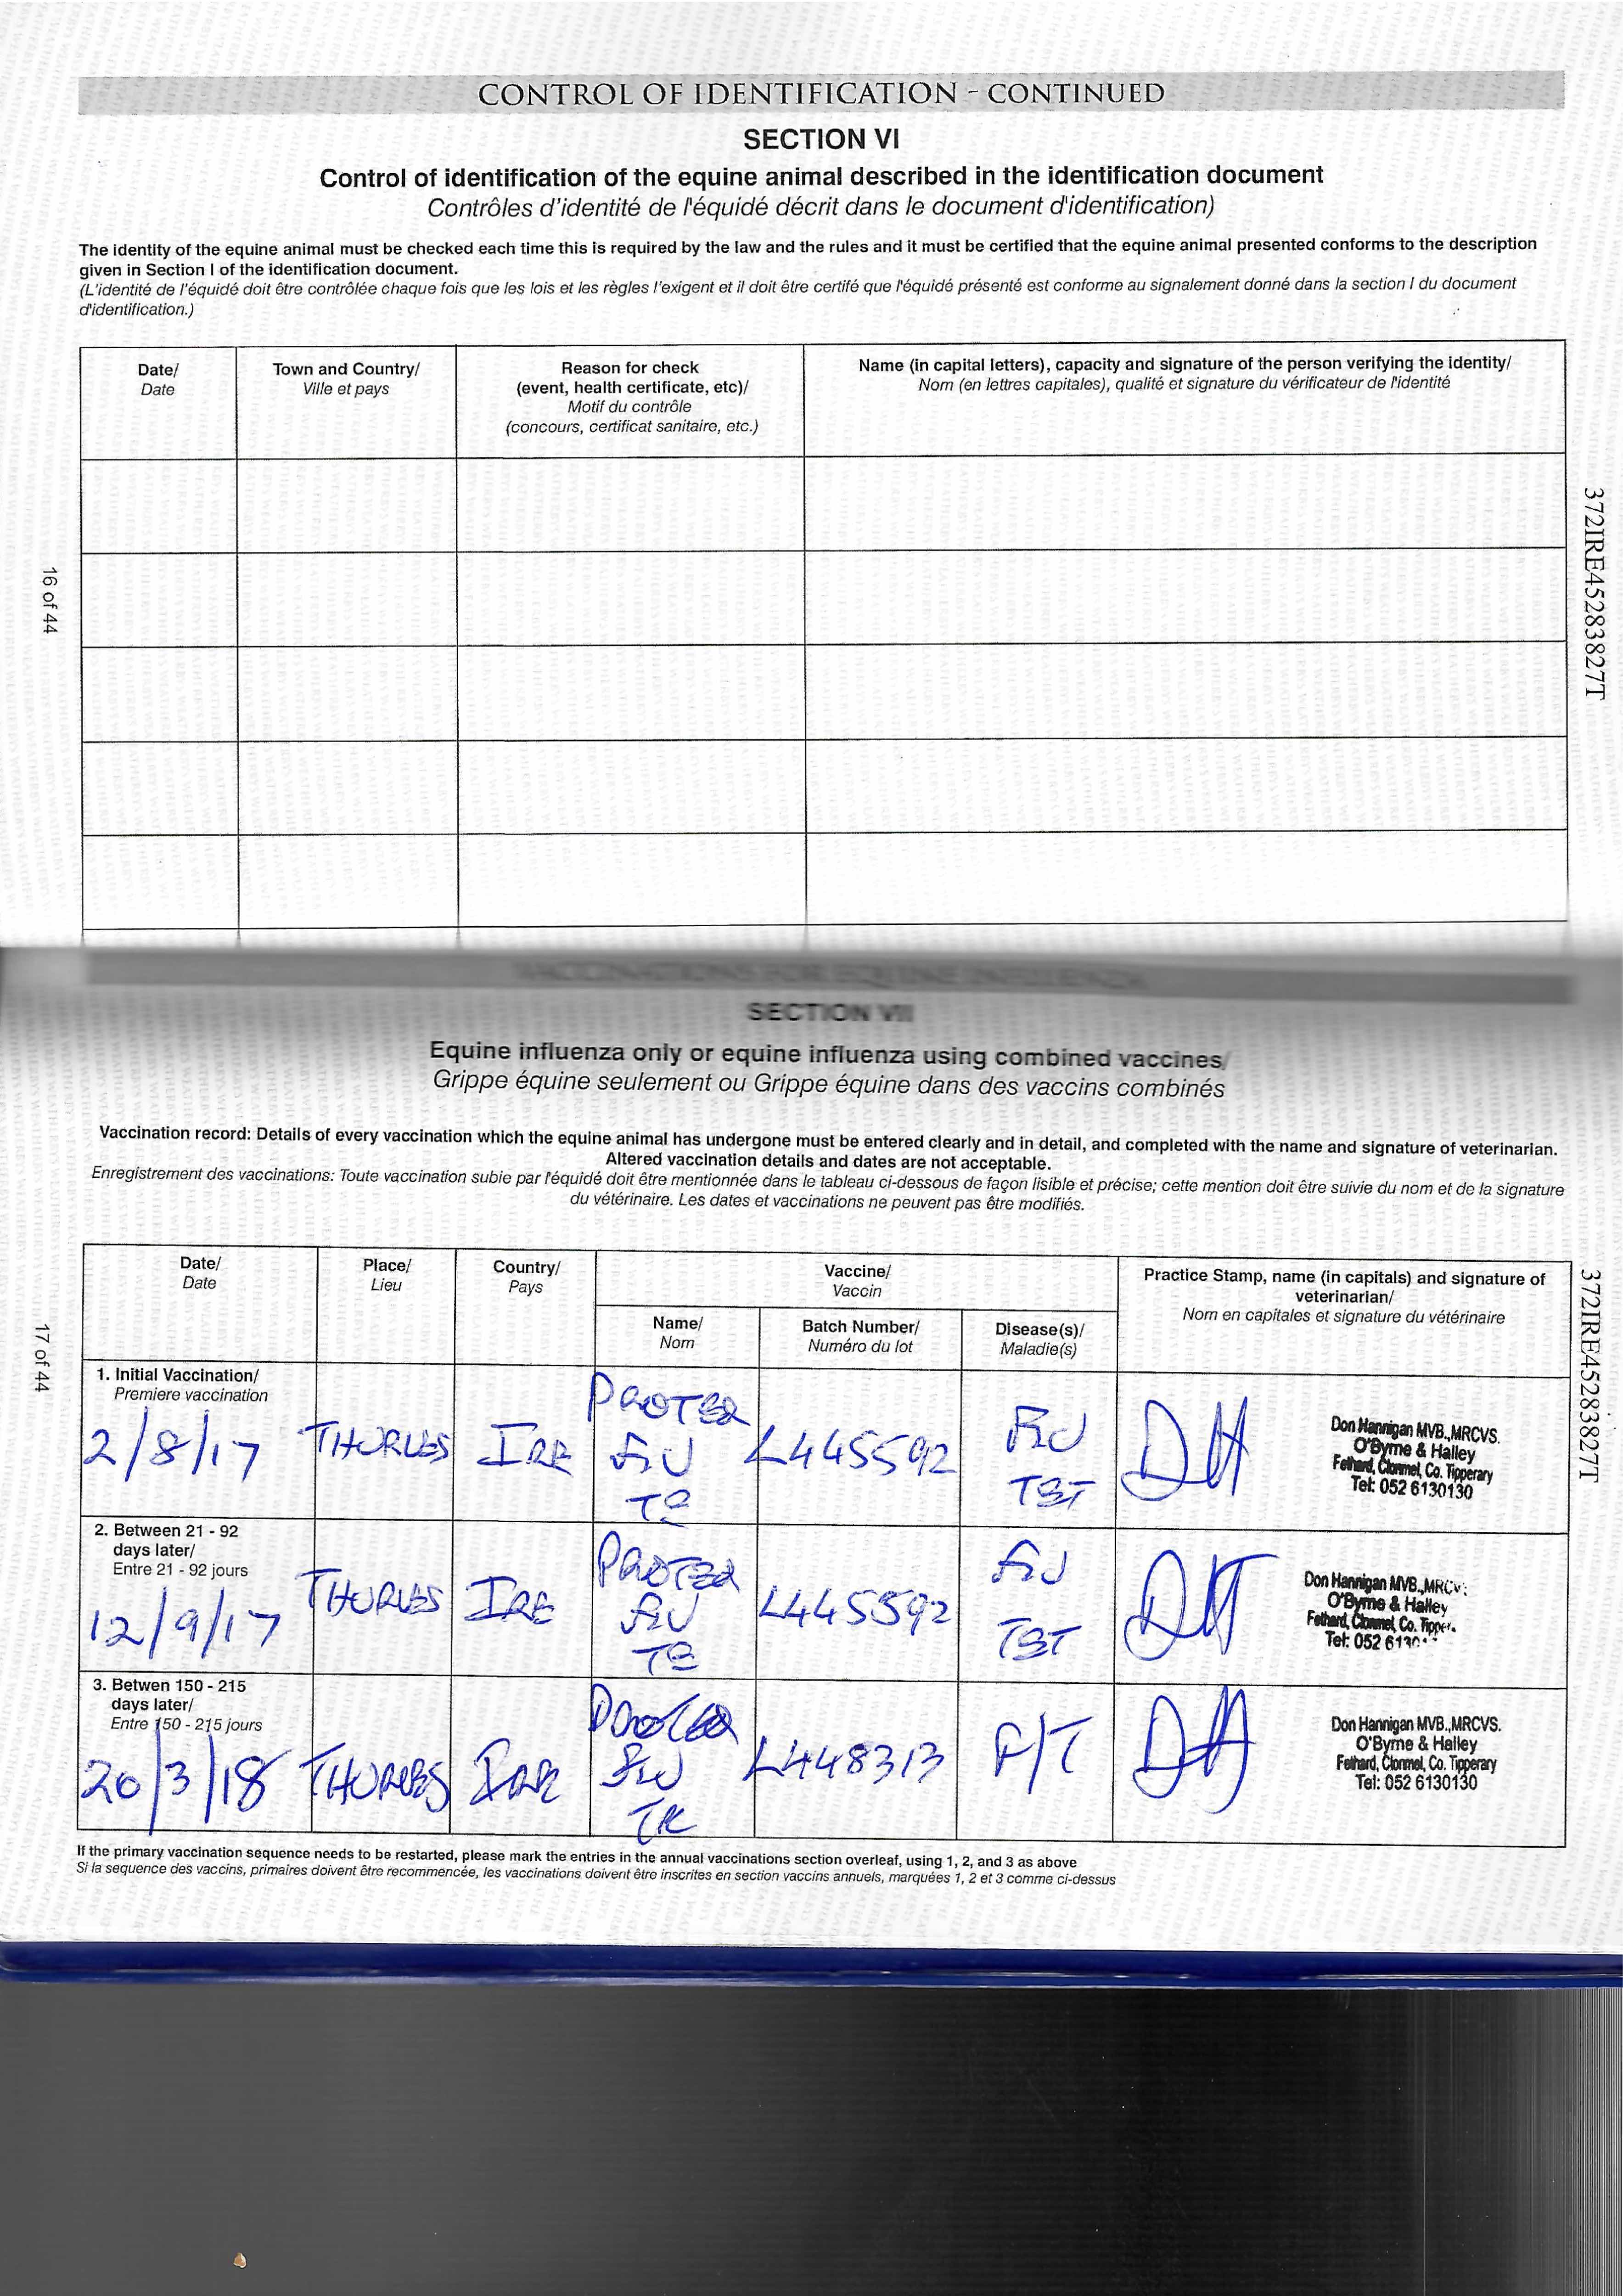 CONTROL OF IDENTIFICATION - CONTINUED
SECTION VI
Control of identification of the equine animal described in the identification document
Contrôles d'identité de l'équidé décrit dans le document d'identification)
The identity of the equine animal must be checked each time this is required by the law and the rules and it must be certified that the equine animal presented conforms to the description
given in Section I of the identification document.
(L'identité de l'équidé doit être contrôlée chaque fois que les lois et les règles l'exigent et il doit être certifé que l'équidé présenté est conforme au signalement donné dans la section I du document
d'identification.)
Date/
Date
Town and Country/
Ville et pays
Reason for check
(event, health certificate, etc)/
Motif du contrôle
(concours, certificat sanitaire, etc.)
Name (in capital letters), capacity and signature of the person verifying the identity/
Nom (en lettres capitales), qualité et signature du vérificateur de l'identité
16 of 44
372IRE45283827T
VACCINATIONS FOR EQUINE INFLUENZA
SECTION VII
Equine influenza only or equine influenza using combined vaccines/
Grippe équine seulement ou Grippe équine dans des vaccins combinés
Vaccination record: Details of every vaccination which the equine animal has undergone must be entered clearly and in detail, and completed with the name and signature of veterinarian.
Altered vaccination details and dates are not acceptable.
Enregistrement des vaccinations: Toute vaccination subie par l'équidé doit être mentionnée dans le tableau ci-dessous de façon lisible et précise; cette mention doit être suivie du nom et de la signature
du vétérinaire. Les dates et vaccinations ne peuvent pas être modifiés.
Date/
Date
Place/
Lieu
Country/
Pays
Vaccine/
Vaccin
Name/
Nom
Batch Number/
Numéro du lot
Disease(s)/
Maladie(s)
Practice Stamp, name (in capitals) and signature of
veterinarian/
Nom en capitales et signature du vétérinaire
17 of 44
372IRE45283827T
1. Initial Vaccination/
Premiere vaccination
2/8/17
THURLES
IRE
PROTEQ
FLU
TE
L445592
FLU
TET
DH
Don Hannigan MVB.,MRCVS.
O'Byrne & Halley
Fethard, Clonmel, Co. Tipperary
Tel: 052 6130130
2. Between 21 - 92
days later/
Entre 21 - 92 jours
12/9/17
THURLES
IRE
PROTEQ
FLU
TE
L445592
FLU
TET
DH
Don Hannigan MVB.,MRCV
O'Byrne & Halley
Fethard, Clonmel, Co. Tipper
Tel: 052 6130
3. Betwen 150 - 215
days later/
Entre 150 - 215 jours
20/3/18
THURLES
IRE
PROTEQ
FLU
L448313
F/T
DH
Don Hannigan MVB.,MRCVS.
O'Byrne & Halley
Fethard, Clonmel, Co. Tipperary
Tel: 052 6130130
If the primary vaccination sequence needs to be restarted, please mark the entries in the annual vaccinations section overleaf, using 1, 2, and 3 as above
Si la sequence des vaccins, primaires doivent être recommencée, les vaccinations doivent être inscrites en section vaccins annuels, marquées 1, 2 et 3 comme ci-dessus